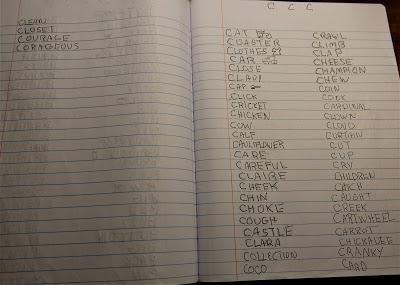 CLEAN
CLOSET
COURAGE
CORAGEOUS
C C C
CAT
COASTER
CLOTHES
CAR
CLOSE
CLAP!
CAP
CLICK
CRICKET
CHICKEN
COW
CALF
CAULIFLOWER
CARE
CAREFUL
CLAIRE
CHEEK
CHIN
CHOKE
COUGH
CASTLE
CLARA
COLLECTION
COCO
CRAWL
CLIMB
CLAP
CHEESE
CHAMPION
CHEW
COIN
COOK
CARDINAL
CLOWN
CLOUD
CURTAIN
CUT
CUP
CRY
CHILDREN
CATCH
CAUGHT
CREEK
CARTWHEEL
CARROT
CHICKADEE
CRANKY
CARD